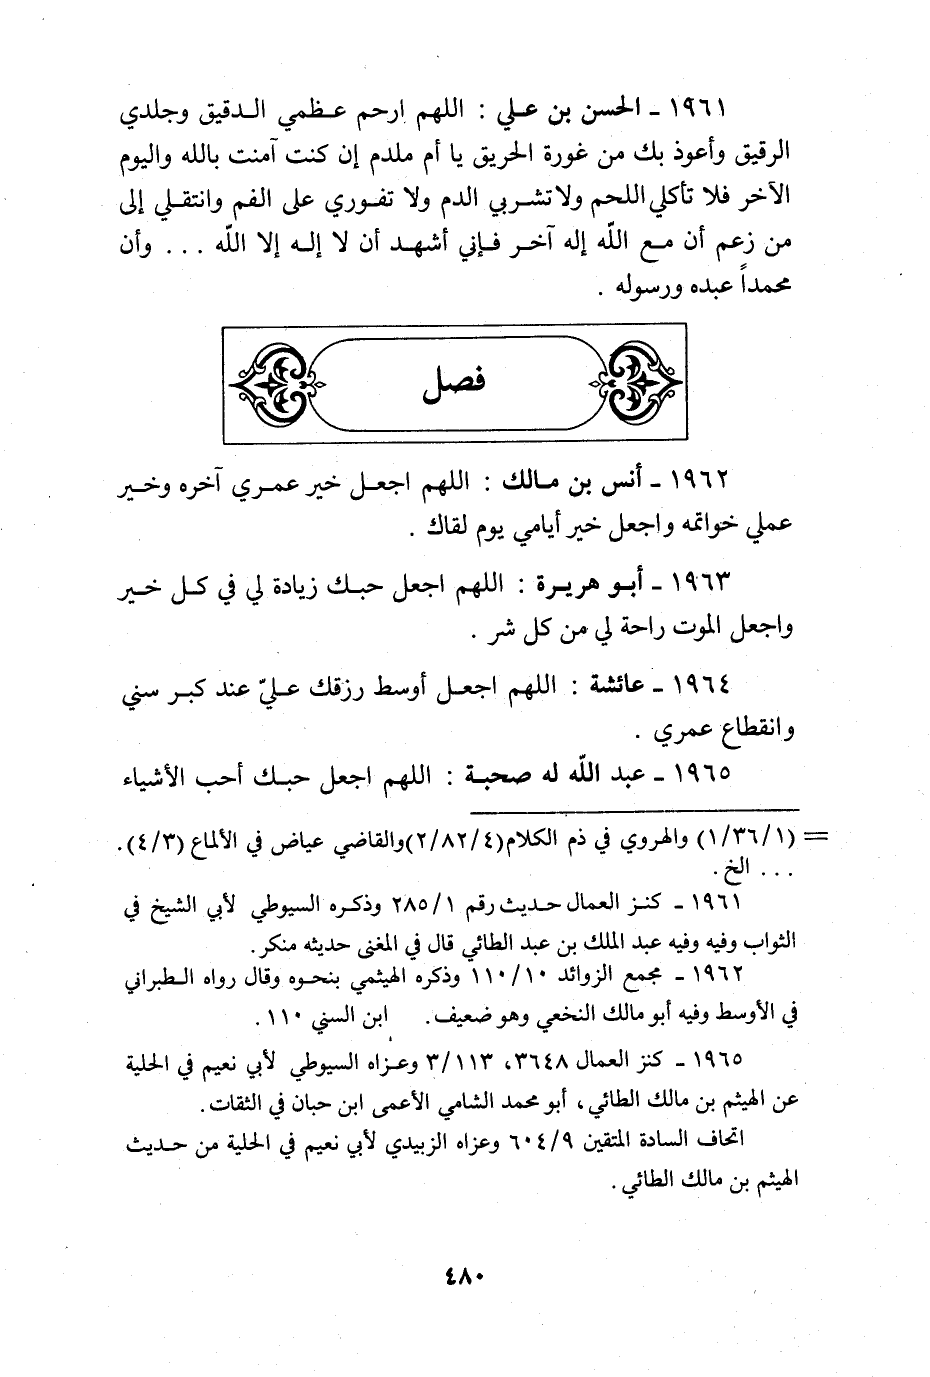 ١٩٦١ ـ الحسن بن علي : اللهم ارحم عظمي الدقيق وجلدي
الرقيق وأعوذ بك من غورة الحريق يا أم ملدم إن كنت آمنت بالله واليوم
الآخر فلا تأكلي اللحم ولا تشربي الدم ولا تفوري على الفم وانتقلي إلى
من زعم أن مع اللّه إله آخر فإني أشهد أن لا إله إلا اللّه ... وأن
محمداً عبده ورسوله .
فصل
١٩٦٢ ـ أنس بن مالك : اللهم اجعل خير عمري آخره وخير
عملي خواتمه واجعل خير أيامي يوم لقاك .
١٩٦٣ ـ أبو هريرة : اللهم اجعل حبك زيادة لي في كل خير
واجعل الموت راحة لي من كل شر .
١٩٦٤ ـ عائشة : اللهم اجعل أوسط رزقك عليّ عند كبر سني
وانقطاع عمري .
١٩٦٥ ـ عبد اللّه له صحبة : اللهم اجعل حبك أحب الأشياء
= (١/٣٦/١) والهروي في ذم الكلام(٢/٨٢/٤)والقاضي عياض في الألماع (٤/٣).
... الخ.
١٩٦١ ـ كنز العمال حديث رقم ٢٨٥/١ وذكره السيوطي لأبي الشيخ في
الثواب وفيه وفيه عبد الملك بن عبد الطائي قال في المغنى حديثه منكر.
١٩٦٢ ـ مجمع الزوائد ١١٠/١٠ وذكره الهيثمي بنحوه وقال رواه الطبراني
في الأوسط وفيه أبو مالك النخعي وهو ضعيف. ابن السني ١١٠.
١٩٦٥ ـ كنز العمال ٣٦٤٨، ٣/١١٣ وعزاه السيوطي لأبي نعيم في الحلية
عن الهيثم بن مالك الطائي، أبو محمد الشامي الأعمى ابن حبان في الثقات.
اتحاف السادة المتقين ٦٠٤/٩ وعزاه الزبيدي لأبي نعيم في الحلية من حديث
الهيثم بن مالك الطائي.
٤٨٠